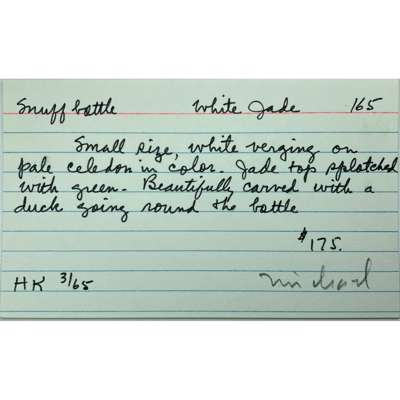 Snuff bottle White Jade 165
Small size, white verging on
pale celedon in color. Jade top splotched
with green. Beautifully carved with a
duck going round the bottle
$175.
HK 3/65 Michael